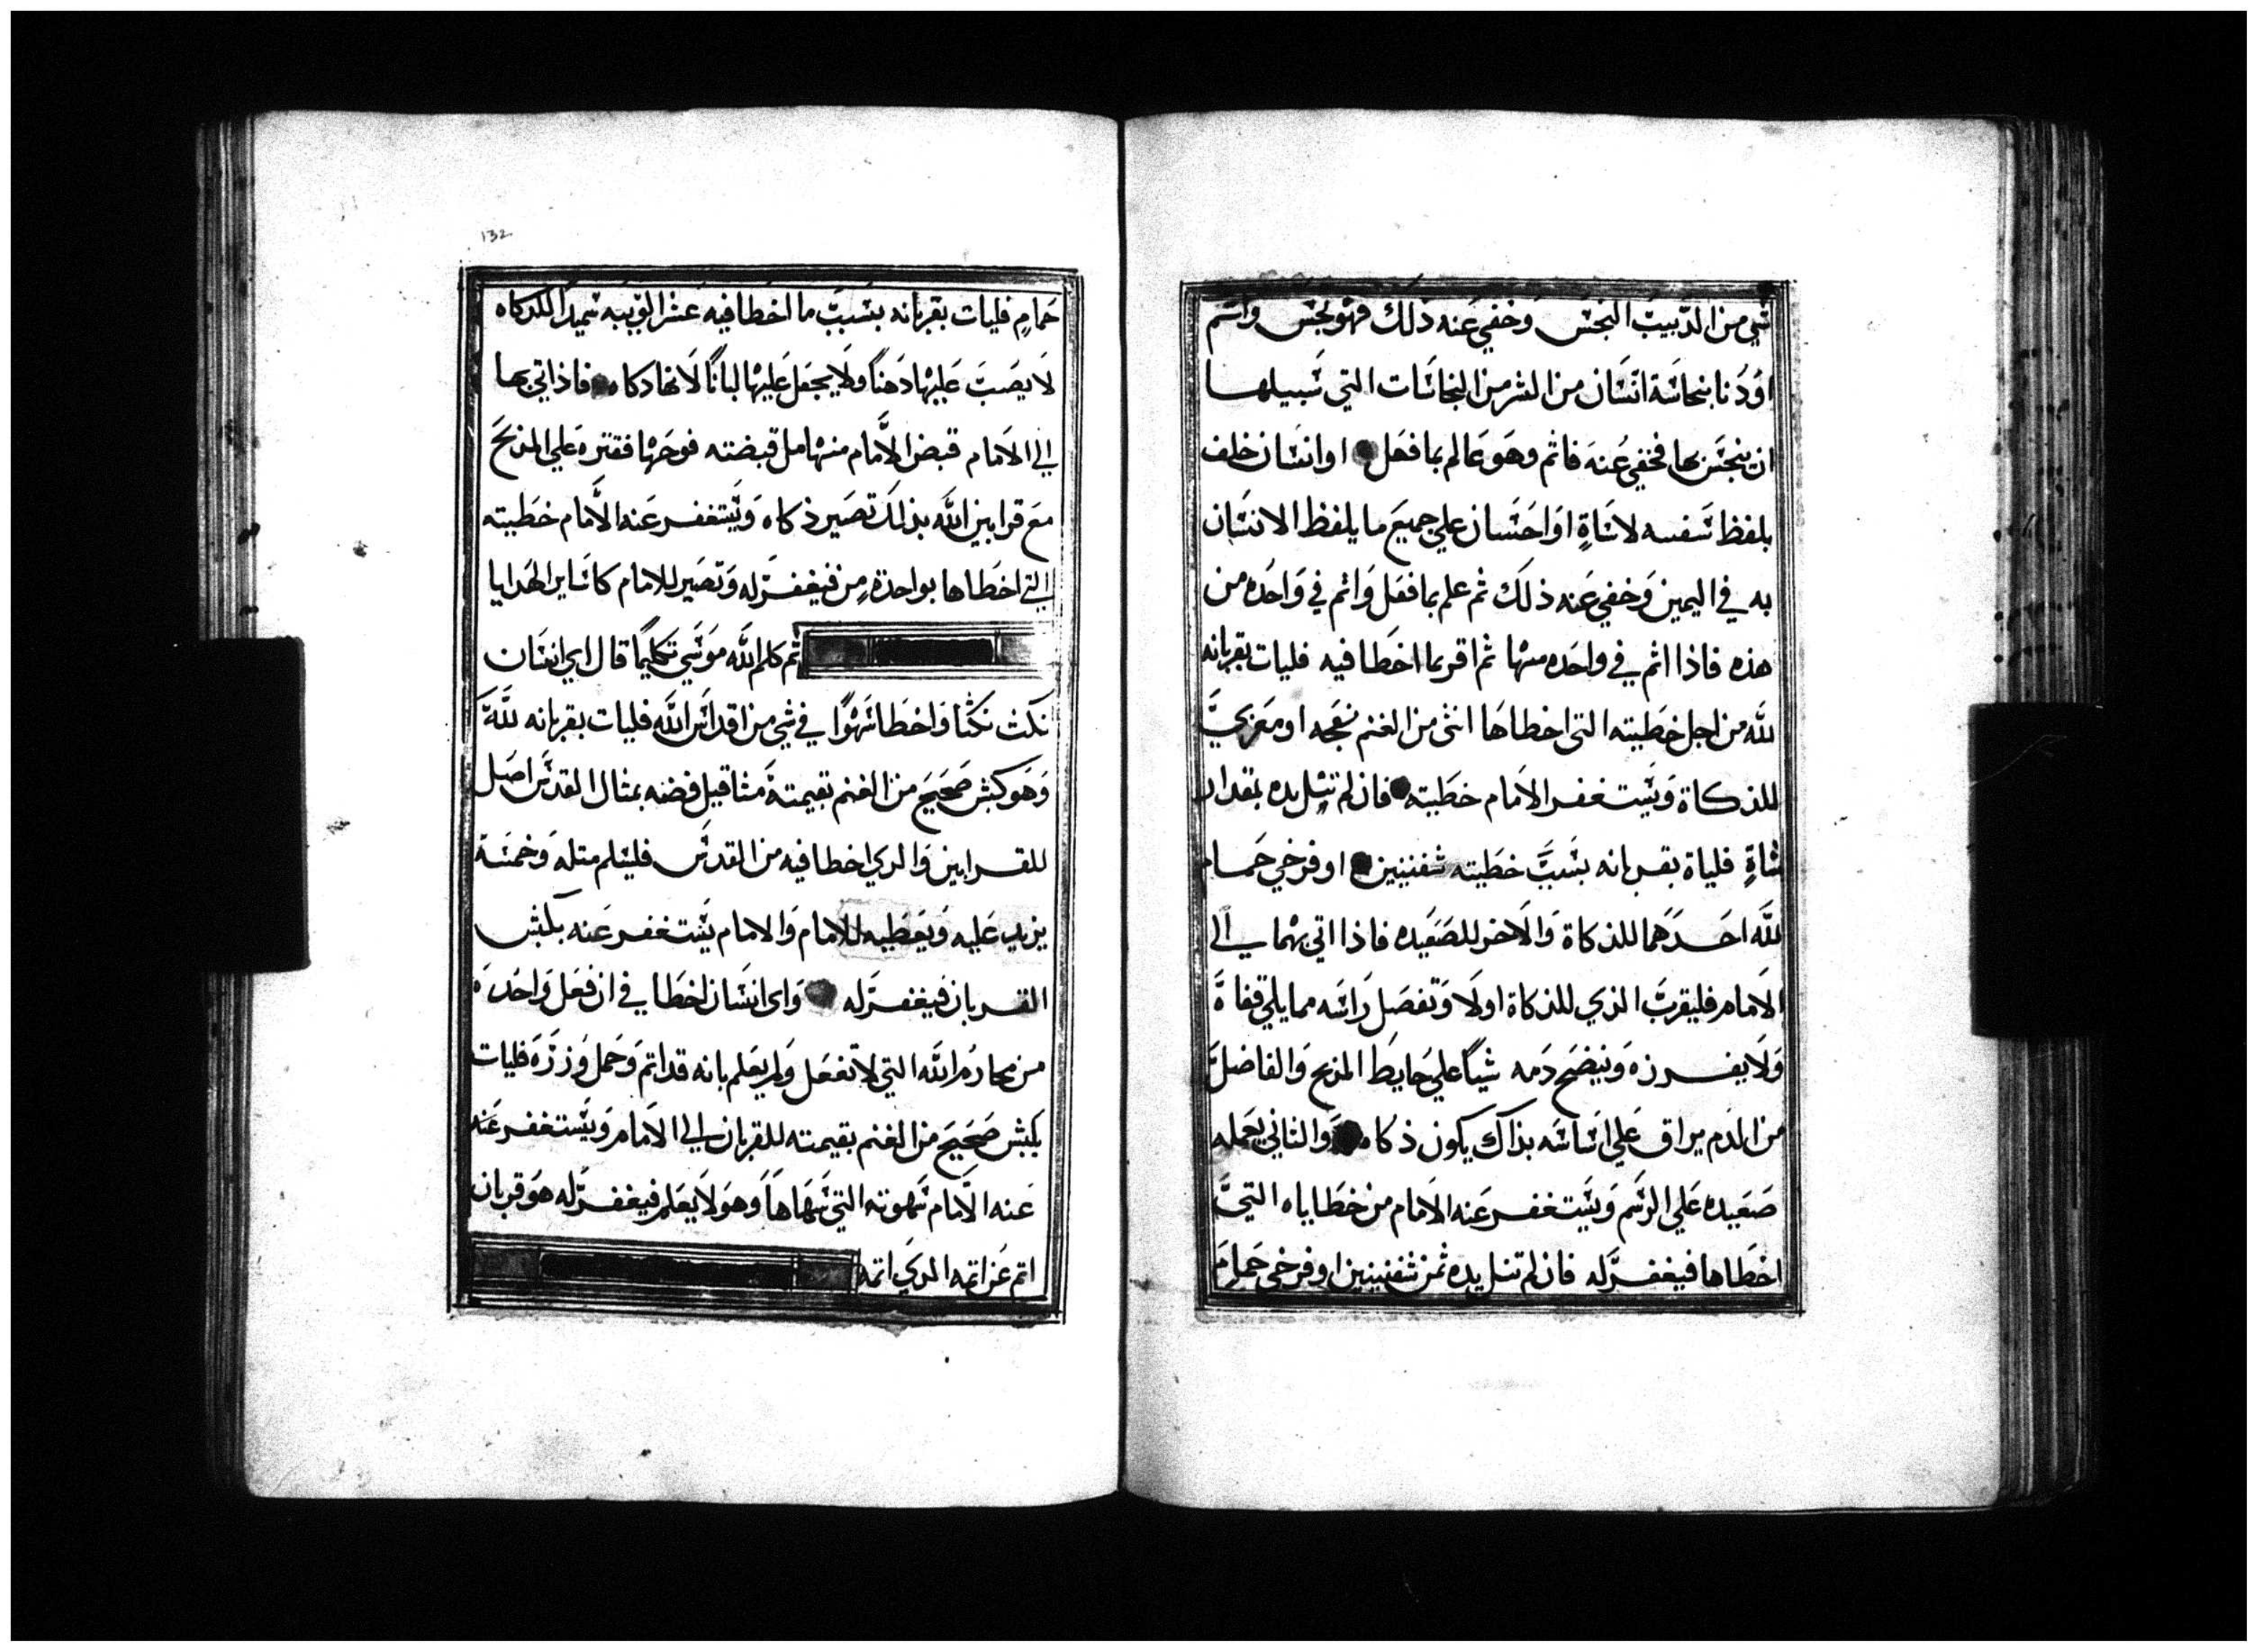 شي من الدبيب النجس وخفي عنه ذلك فهو نجس واثم
او دنا بنجاسة انسان من الشر من النجاسات التي سبيلها
ان ينجس بها فخفي عنه فاثم وهو عالم بما فعل او انسان خلف
بلفظ شفسه لاساةٍ او احسان علي جميع ما يلفظ الانسان
به في اليمين وخفي عنه ذلك ثم علم بما فعل واثم في واحده من
هذه فاذا اثم في واحده منها ثم اقر بما اخطا فيه فليات بقربانه
لله من اجل خطيته التي اخطاها انثى من الغنم نعجه او معزي
للذكاة ويستغفر الامام خطيته فان لم تنل يده بمقدار
شاةٍ فلياة بقربانه بسبب خطيته شفنينين او فرخي حمام
لله احدهما للذكاة والاخر للصعيده فاذا اتي بهما الي
الامام فليقرب الذي للذكاة اولا وتفصل راسه مما يلي قفاة
ولا يفرزه وينضح دمه شياً علي حايط المذبح والفاضل
من الدم يراق علي اساسه بذاك يكون ذكاه والثاني يعمله
صعيده علي الرسم ويستغفر عنه الامام من خطاياه التي
اخطاها فيغفر له فان لم تنل يده ثمن شفنينين او فرخي حمام
132
حمامٍ فليات بقربانه بسبب ما اخطا فيه عشر الويبه سميدا للذكاه
لا يصب عليها دهناً ولا يجعل عليها لباناً لانها دكاه فاذ اتي بها
الي الامام قبض الامام منها مل قبضته فوجها فقتره علي المذبح
مع قرابين الله بذلك تصير ذكاه ويستغفر عنه الامام خطيته
التي اخطاها بواحدة من فيغفر له وتصير للامام كساير الهدايا
ثم كلم الله موسي تكليماً قال اي انسان
نكث نكثا واخطا سهواً في شي من اقداس الله فليات بقربانه لله
وهو كبش صحيح من الغنم بقيمتة مثاقيل فضه بمثال القدس اصل
للقرابين والدي اخطا فيه من القدس فليسلم متله وخمسة
يزيد عليه ويعطيه للامام والامام يستغفر عنه بكبش
القربان فيغفر له واي انسان اخطا في ان فعل واحدة
من محارم الله التي لا تفعل ولم يعلم بانه قد اتم وحمل وزره فليات
بكبش صحيح من الغنم بقيمته للقربان الي الامام ويستغفر عنه
عنه الامام سهوته التي سهاها وهو لا يعلم فيغفر له هو قربان
اتم عن اتمه الدي اتمه